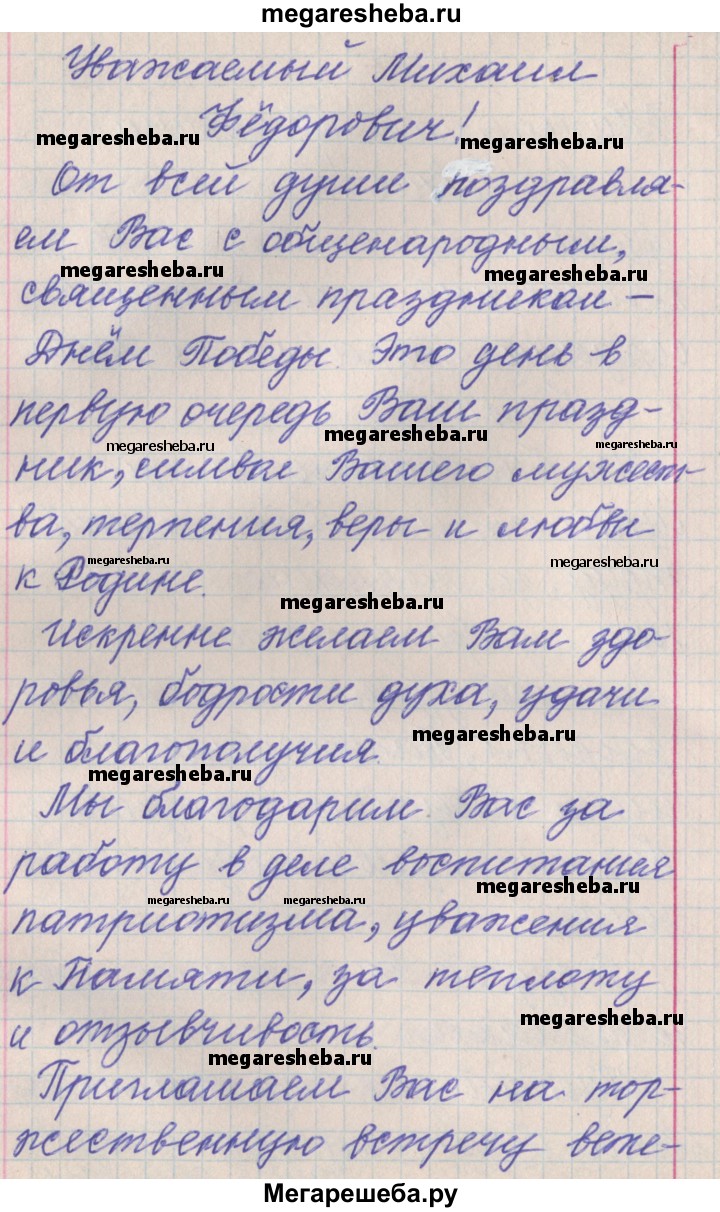 megaresheba.ru
Уважаемый Михаил
Фёдорович!
megaresheba.ru megaresheba.ru
От всей души поздравля-
ем Вас с общенародным,
megaresheba.ru megaresheba.ru
священным праздником –
Днём Победы. Это день в
первую очередь Ваш празд-
megaresheba.ru megaresheba.ru megaresheba.ru
ник, символ Вашего мужест-
ва, терпения, веры и любви
megaresheba.ru megaresheba.ru
к Родине.
megaresheba.ru
Искренне желаем Вам здо-
ровья, бодрости духа, удачи
megaresheba.ru
и благополучия.
megaresheba.ru
Мы благодарим Вас за
работу в деле воспитания
megaresheba.ru
megaresheba.ru megaresheba.ru
патриотизма, уважения
к Памяти, за теплоту
megaresheba.ru
и отзывчивость.
megaresheba.ru
Приглашаем Вас на тор-
жественную встречу вете-
Мегарешеба.ру